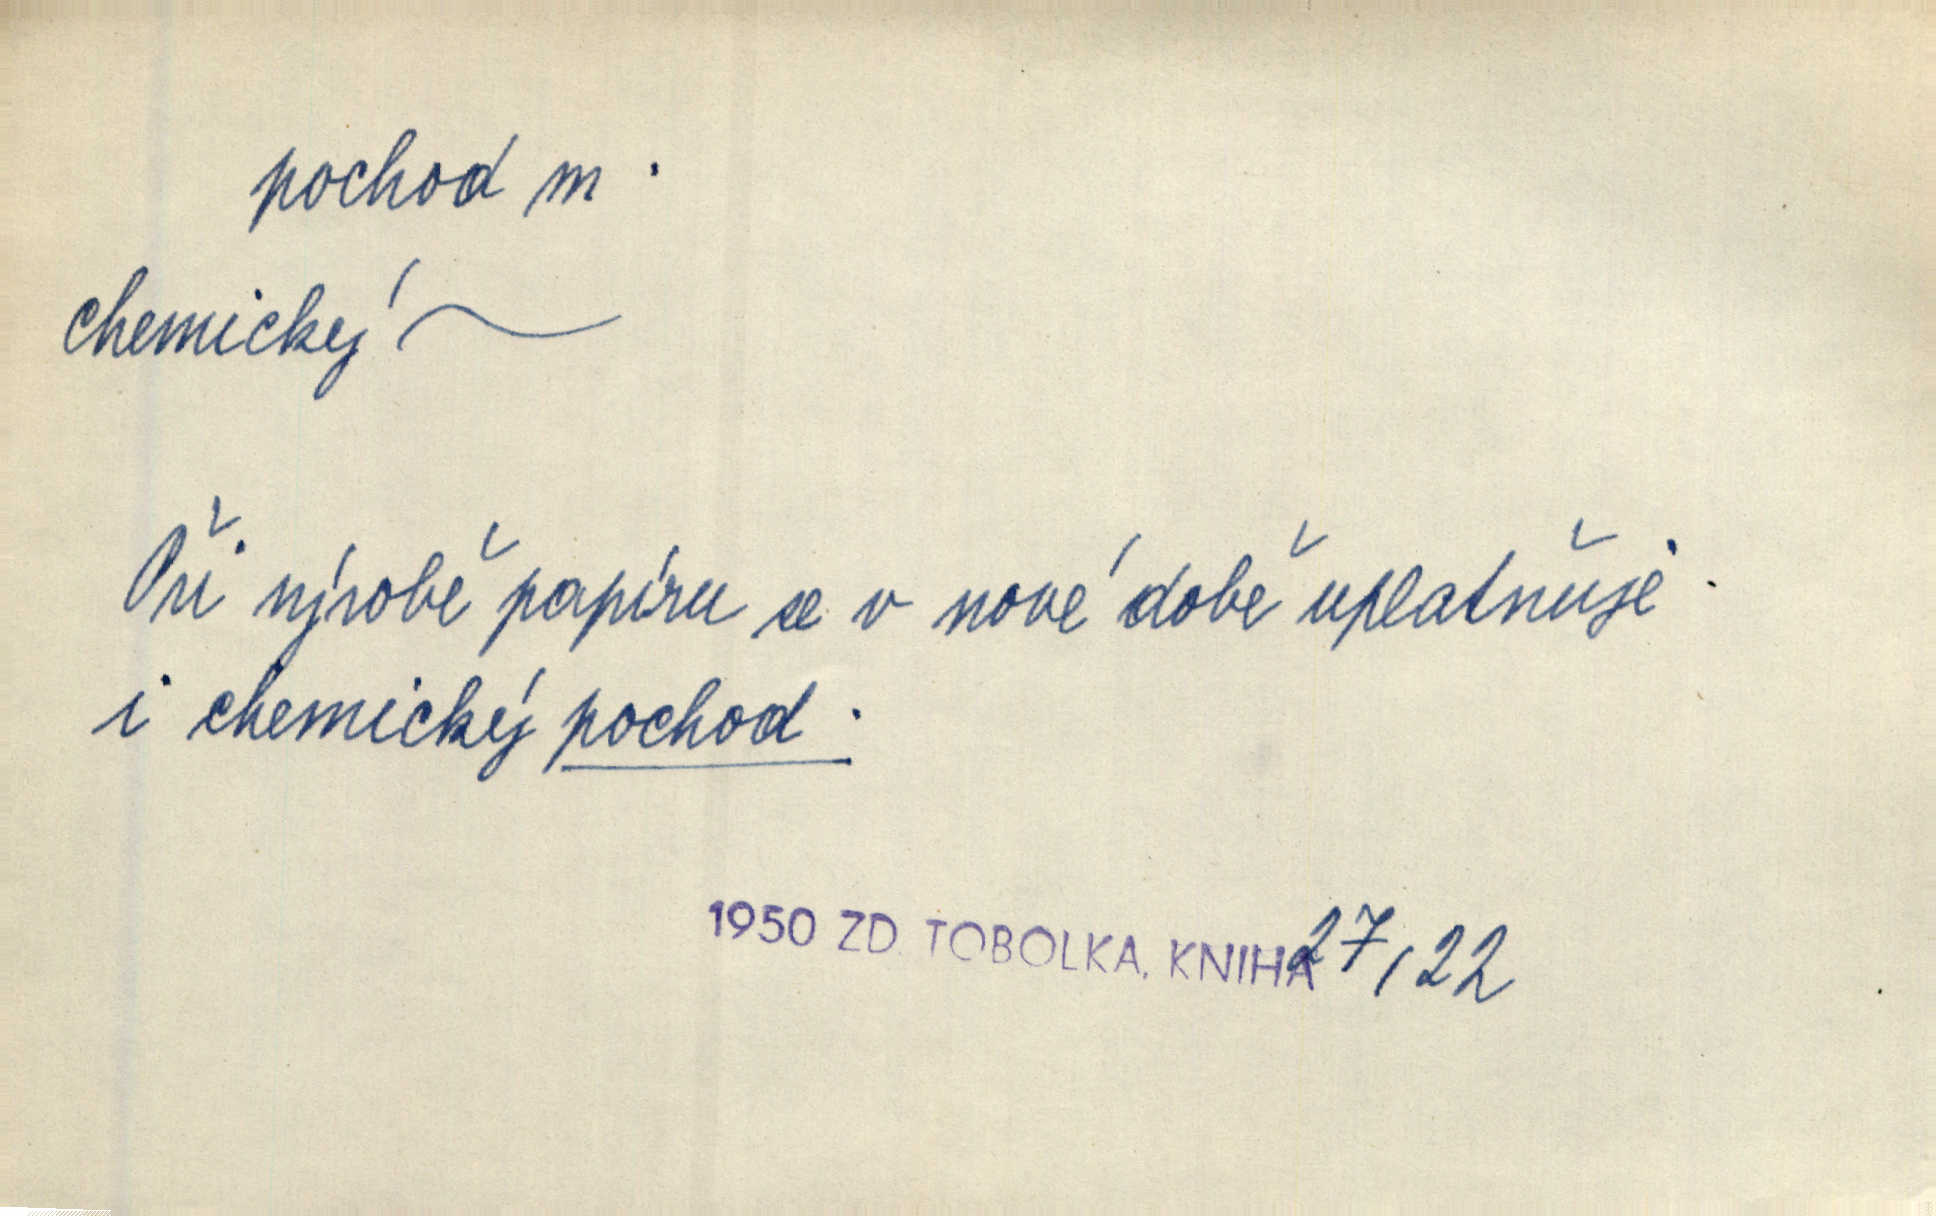 pochod m.
chemický ~
Při výrobě papíru se v nové době uplatňuje
i chemický pochod.
1950 ZD. TOBOLKA, KNIHA 27,22